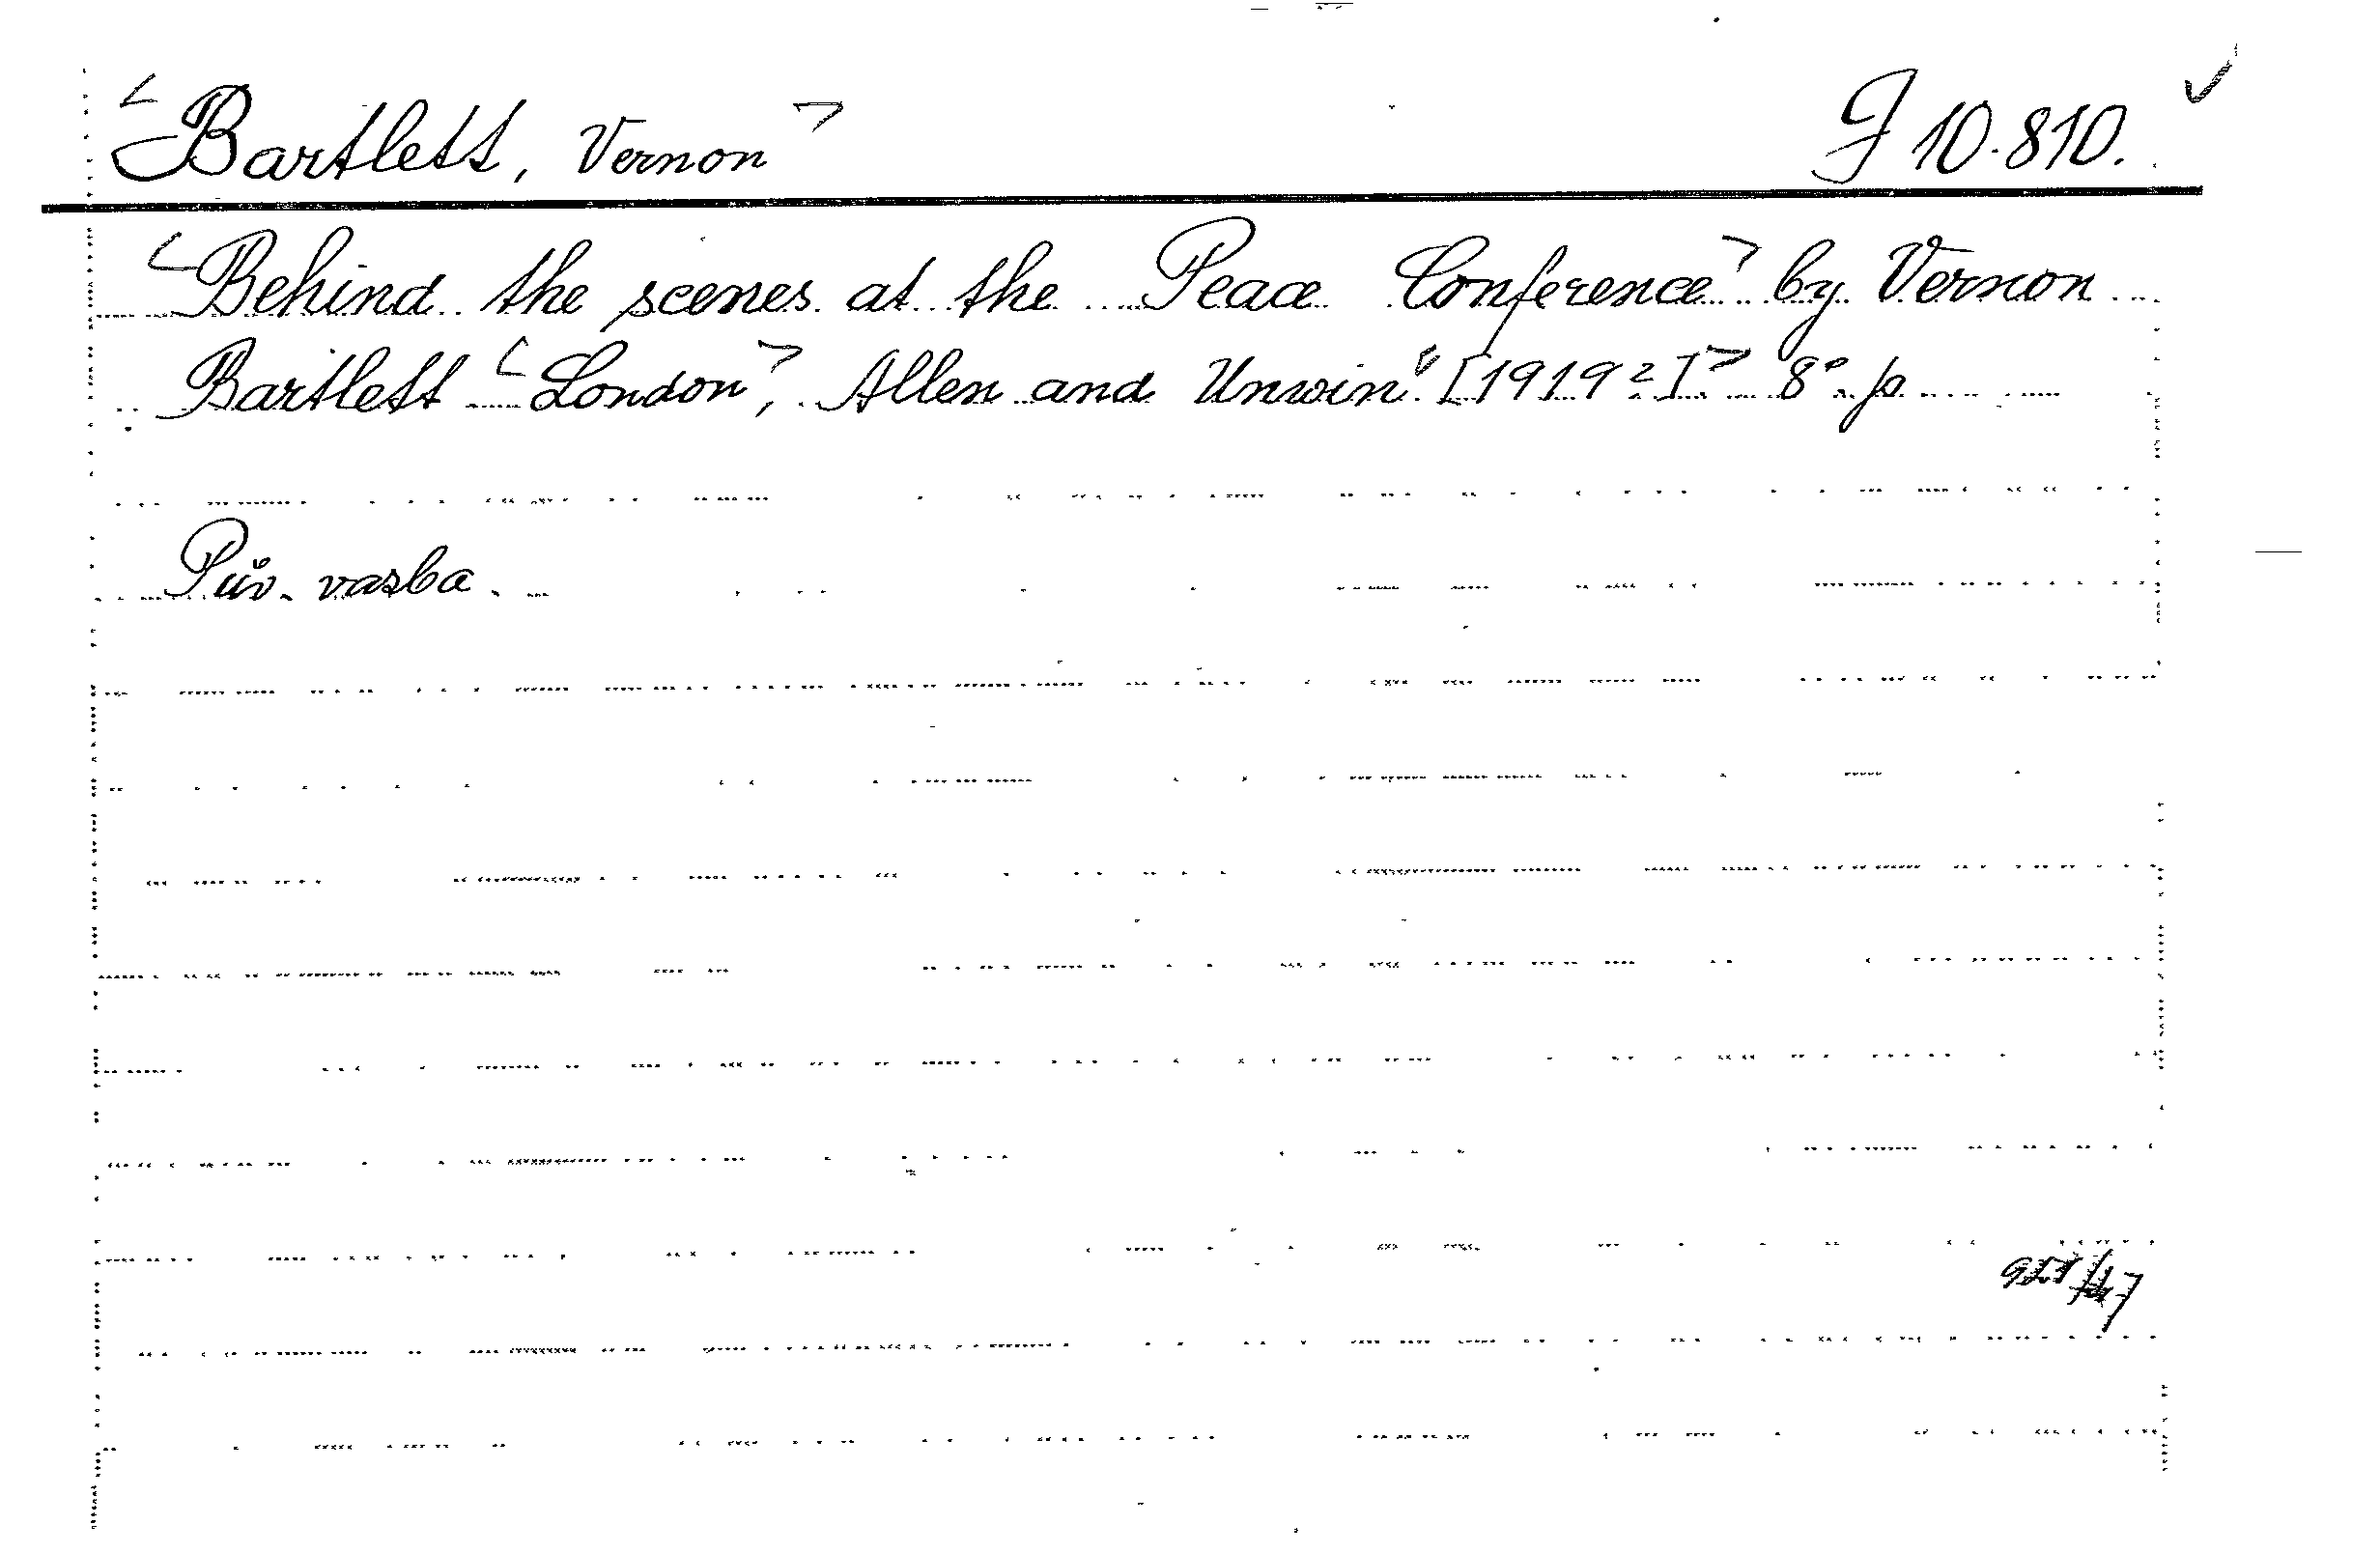 Bartlett, Vernon J 10.810.
Behind the scenes at the Peace Conference by Vernon
Bartlett London, Allen and Unwin [1919?] 8° p
Pův. vazba.